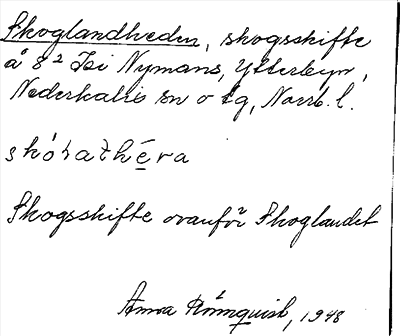 Skoglandheden, skogsskifte
å 8² Isi Nymans, Ytterbyn,
Nederkalix sn o tg, Norrb. l.
skóʹrażhéva
Skogsskifte ovanför Skoglandet
Anna Rönnquist, 1948